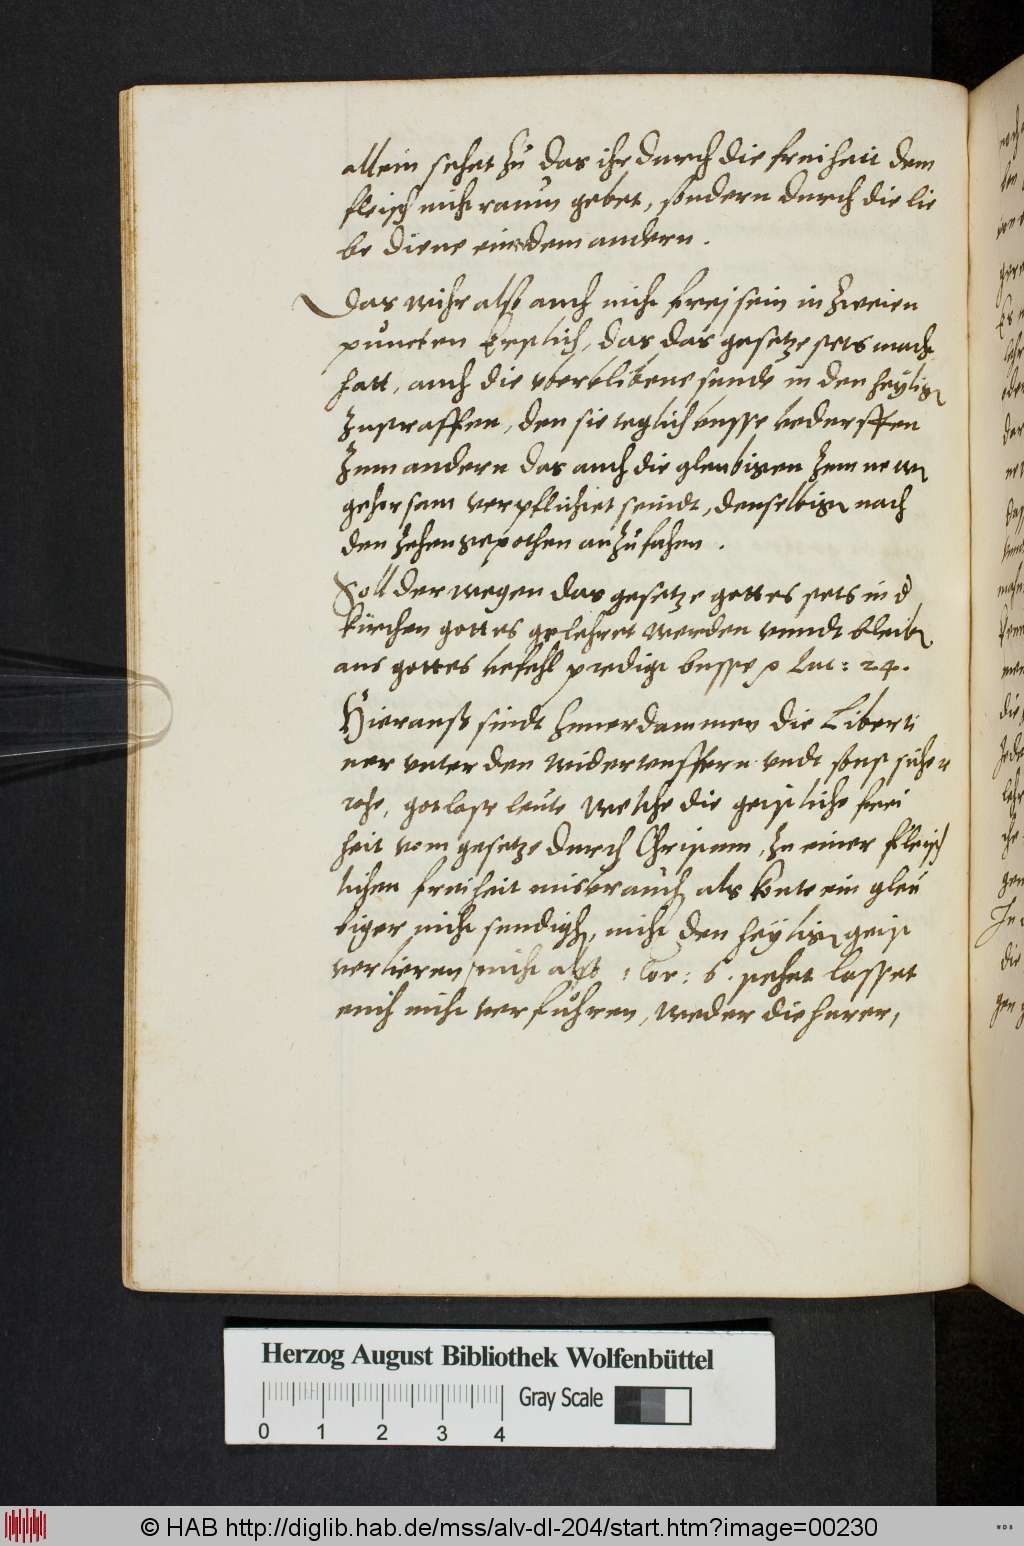 allein sehet zu das ihr durch die freiheit dem
fleisch nicht raum gebet, sondern durch die lie
be diene ein dem andern.
Das wihr also auch nicht frej sein in zweien
puncten Erstlich, das das gesetze stets macht
hatt, auch die vberblibene sunde in den heylig
zustraffen, den sie teglich busse bedersffen
Zum andern das auch die gleubigen zum new
gehorsam verpflichtet seindt, denselbig nach
den zehen gepothen anzufahen.
Soll derwegen das gesetze gottes stets in d
kirchen gottes gelehret werden vnndt bleib
aus gottes befehl predigt busse Luc: 24.
Hierauß sindt zuuerdammen die Liberti
ner vnter den widerteuffern vndt sonst sicher
rohe, gotlose leute welche die geistliche frei
heit vom gesetze durch Christum, zu einer fleisch
lichen freiheit misbrauch als konte ein gleu
biger nicht sundigh, nicht den heylig geist
verlieren nicht also 1 Cor: 6. sehet lasset
euch nicht verfuhren, weder die hurer,
Herzog August Bibliothek Wolfenbüttel
Gray Scale
0 1 2 3 4
© HAB http://diglib.hab.de/mss/alv-dl-204/start.htm?image=00230